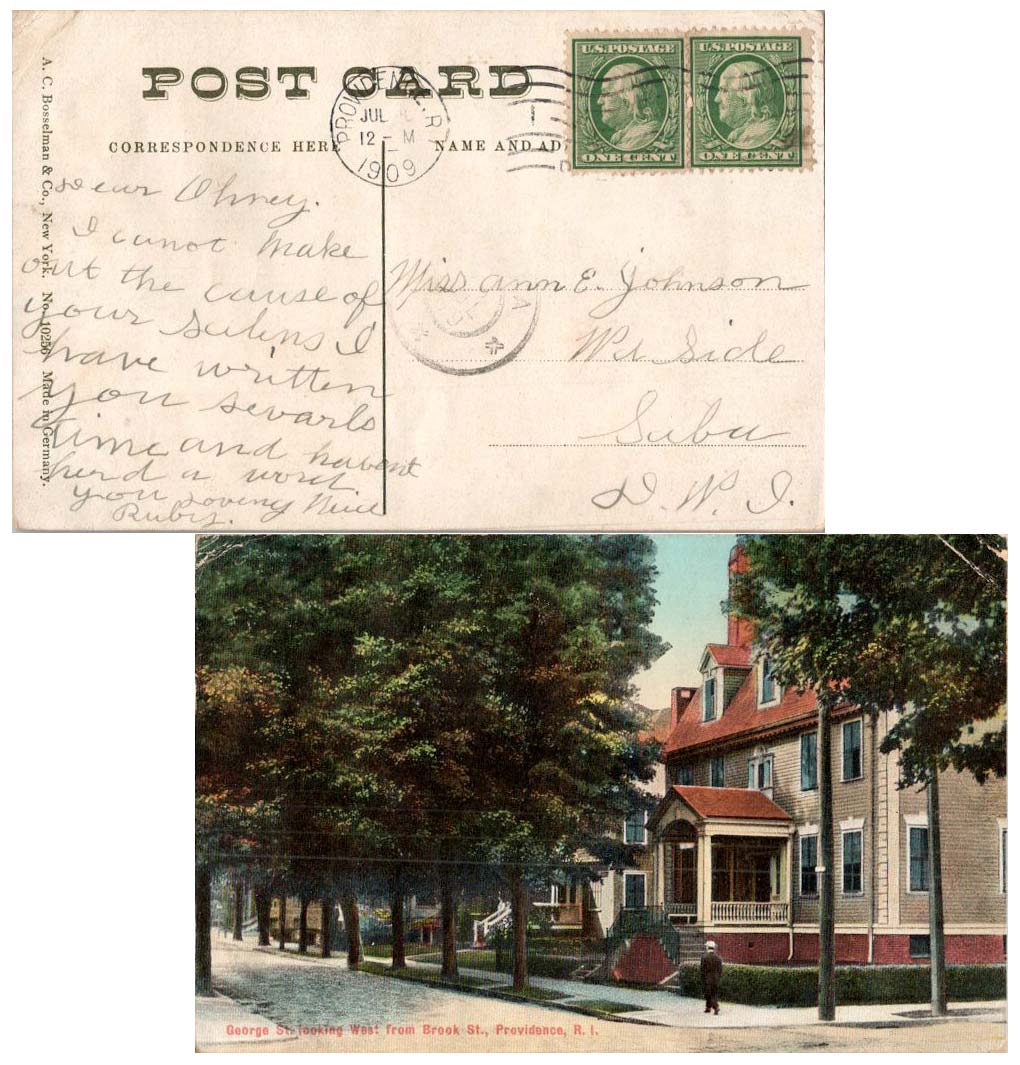 POST CARD
CORRESPONDENCE HERE
NAME AND AD
A. C. Bosselman & Co., New York. No. 10256 Made in Germany.
PROVIDENCE, R.I.
JUL
12 - M
1909
U.S. POSTAGE
ONE CENT
U.S. POSTAGE
ONE CENT
Dear Ohney.
I canot make
out the cause of
your Silens I
have written
you sevarls
time and havent
herd a word
you Loveng Niece
Ruby.
Miss Ann E. Johnson
Wst Side
Saba
D. W. I.
George St. looking West from Brook St., Providence, R. I.